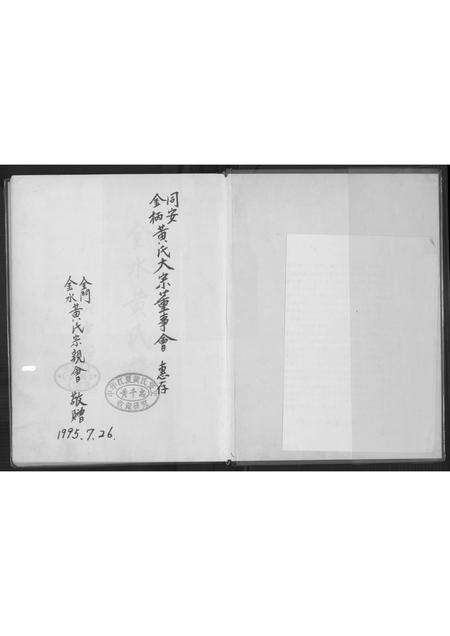 同安
金柄黃氏大宗董事會 惠存
金門
金水黃氏宗親會 敬贈
1995.7.26.